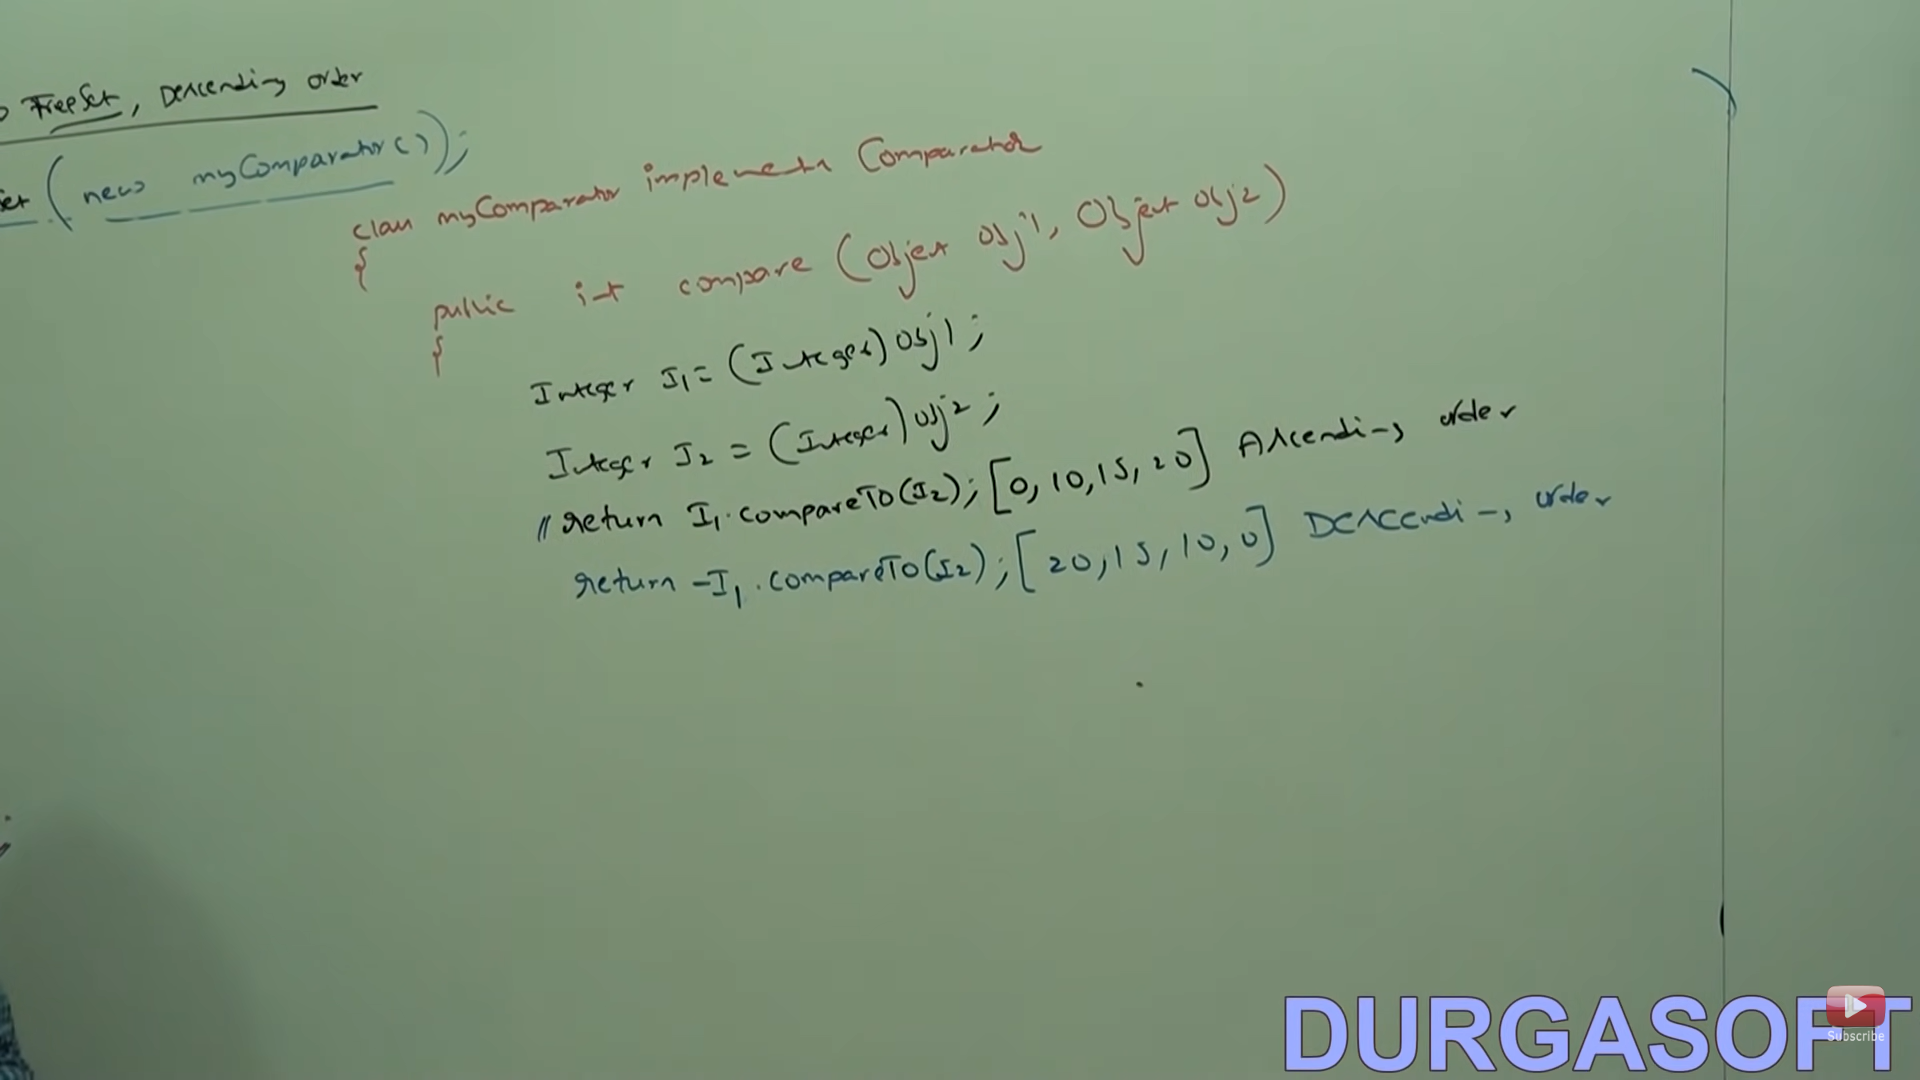 TreeSet, Descending order
Set (new myComparator());
class myComparator implements Comparator
{
public int compare (Object obj1, Object obj2)
{
Integer I1 = (Integer) obj1 ;
Integer I2 = (Integer) obj2 ;
// return I1.compareTo(I2); [0, 10, 15, 20] Ascending order
return -I1.compareTo(I2); [20, 15, 10, 0] Descending order
DURGASOFT
Subscribe